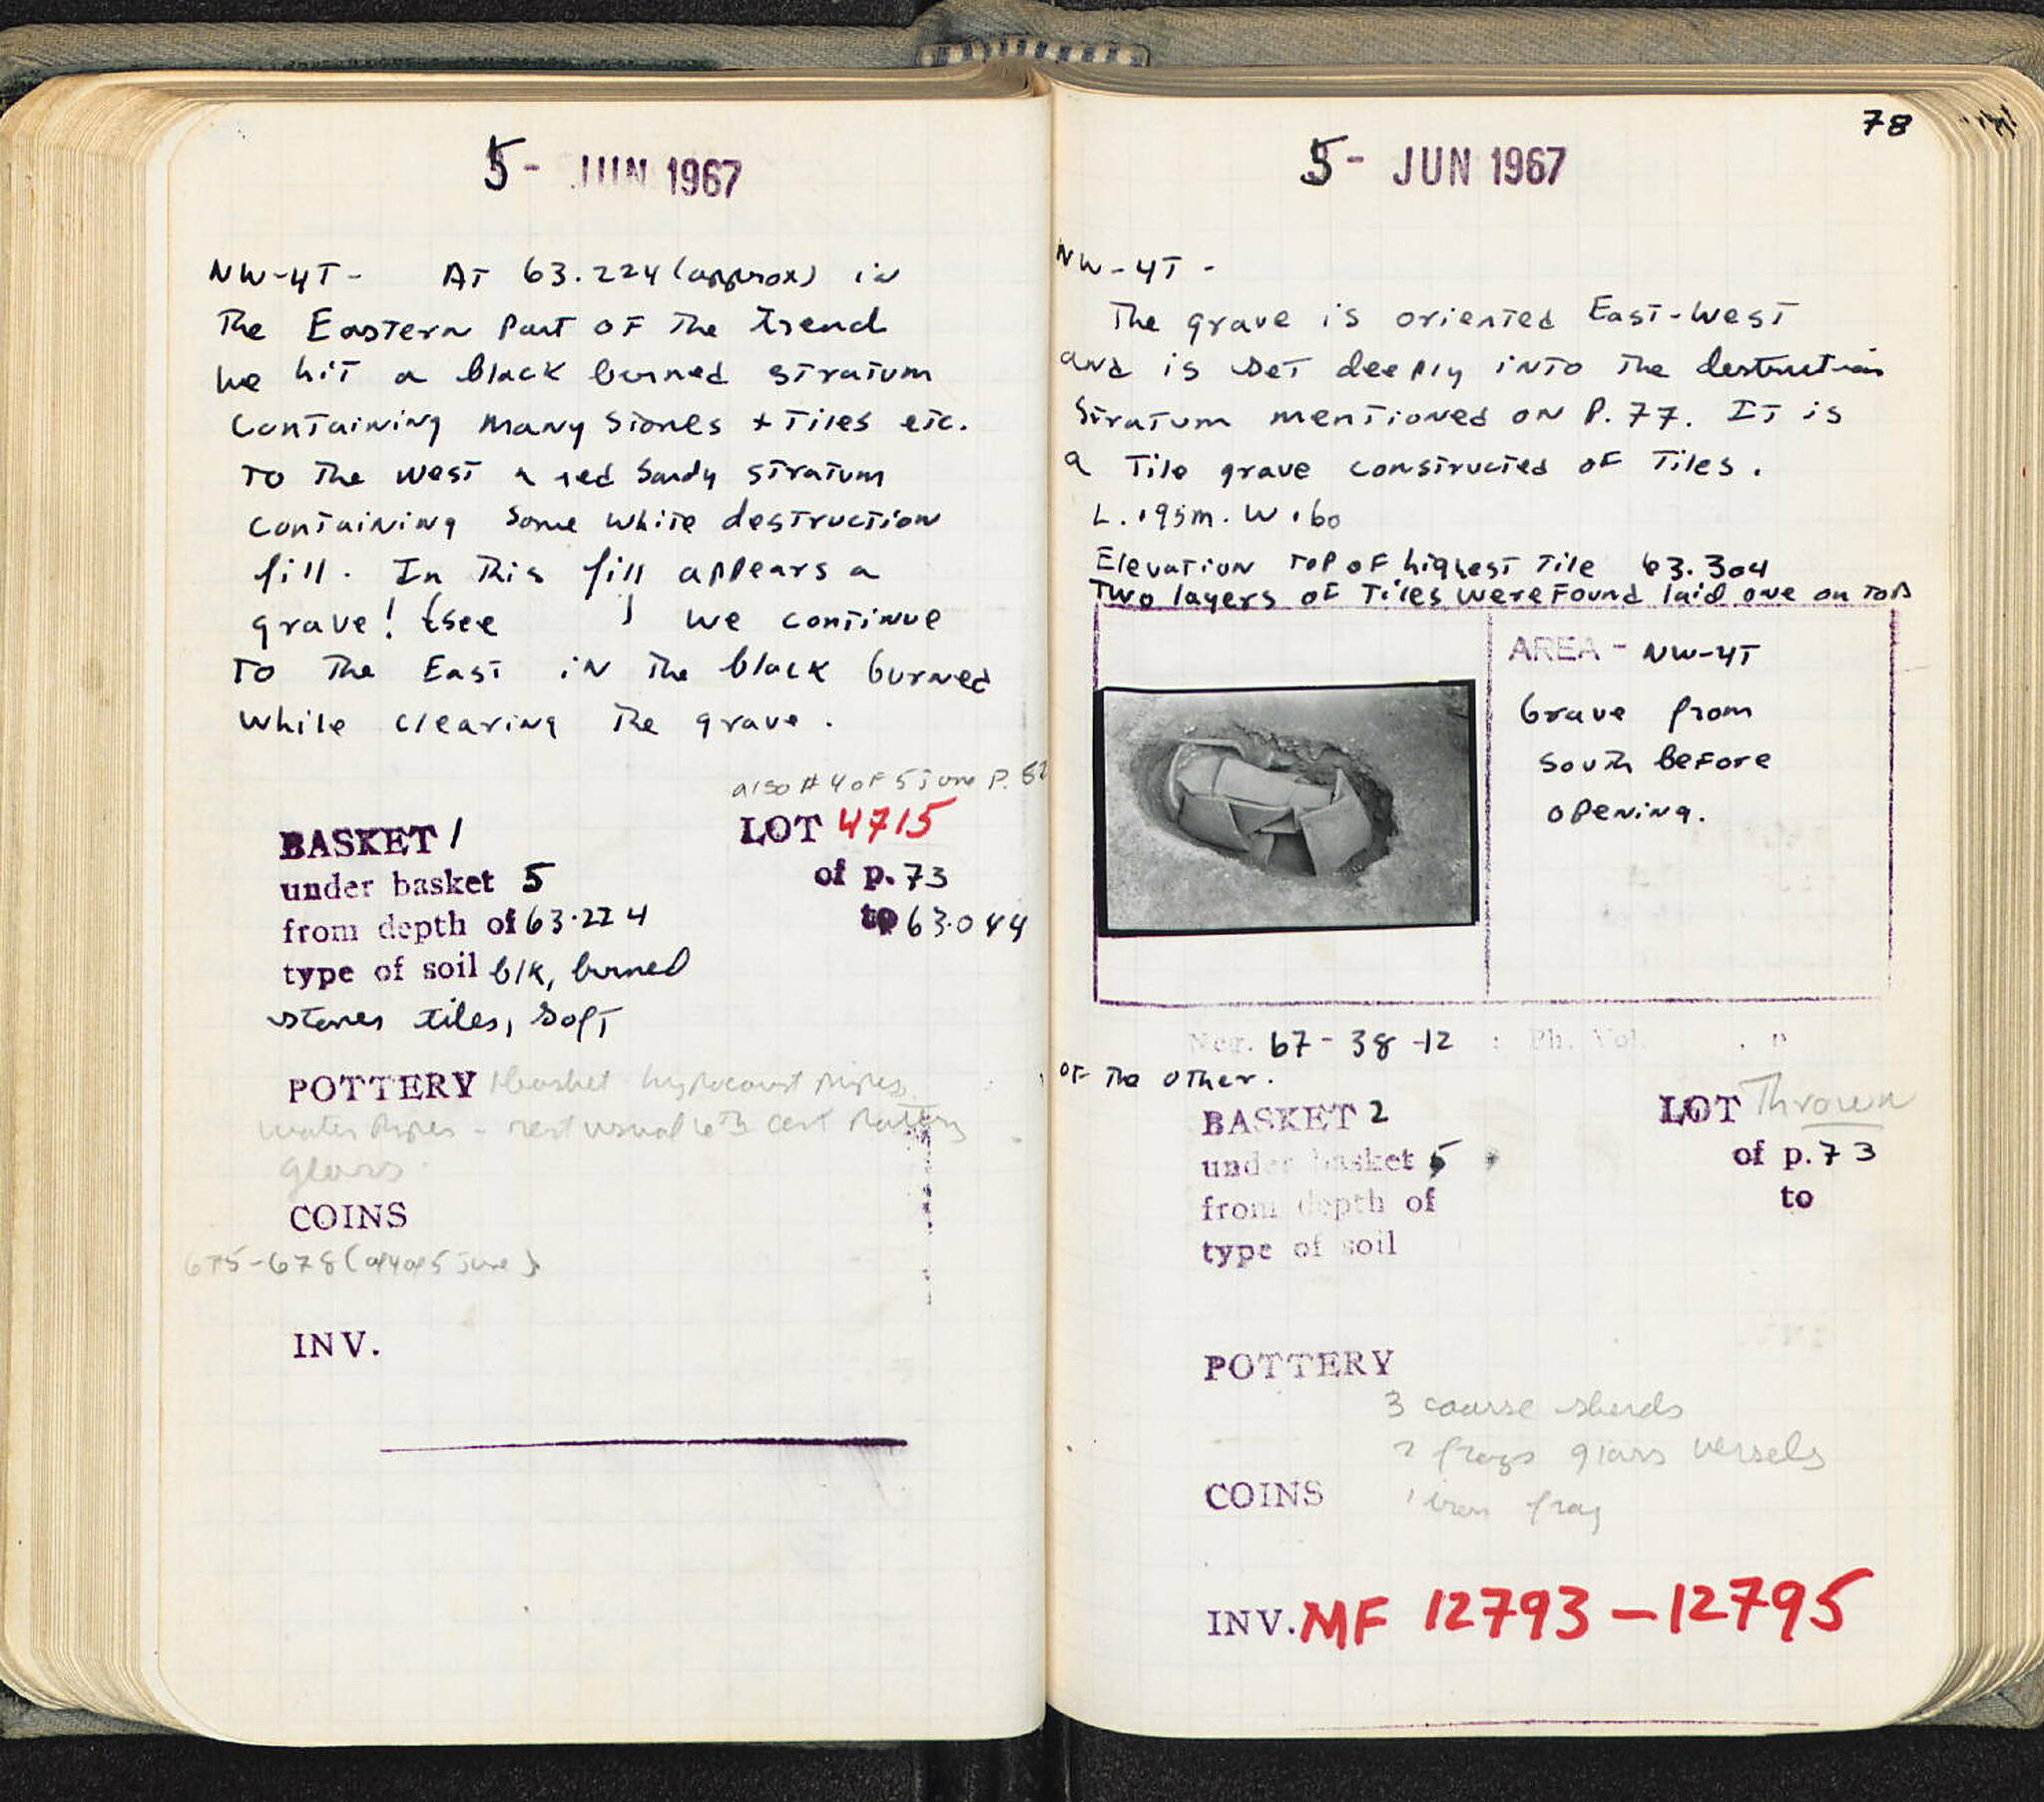 5- JUN 1967
NW-4T- At 63.224 (approx) in
The Eastern Part of The trench
we hit a black burned stratum
containing many stones + tiles etc.
To The west a red sandy stratum
containing some white destruction
fill. In This fill appears a
grave! (see ) we continue
To The East in The black burned
while clearing The grave.
also # 4 of 5 june P. 82
BASKET 1 LOT 4715
under basket 5 of p. 73
from depth of 63.224 to 63.044
type of soil blk, burned
stones tiles, soft
POTTERY 1 basket hypocaust pipes
water pipes - rest usual
glass
COINS
675-678 (of 4 of 5 june)
INV.
78
5- JUN 1967
NW-4T-
The grave is oriented East-West
and is set deeply into The destruction
stratum mentioned on P. 77. It is
a Tile grave constructed of Tiles.
L. .95m. W .60
Elevation top of highest Tile 63.304
Two layers of Tiles were found laid one on top
AREA - NW-4T
Grave from
South Before
opening.
Neg. 67-38-12 : Ph. Vol. , p
of The other.
BASKET 2 LOT Thrown
under basket 5 of p. 73
from depth of to
type of soil
POTTERY
3 coarse sherds
2 frags glass vessels
COINS 1 iron frag
INV. MF 12793-12795